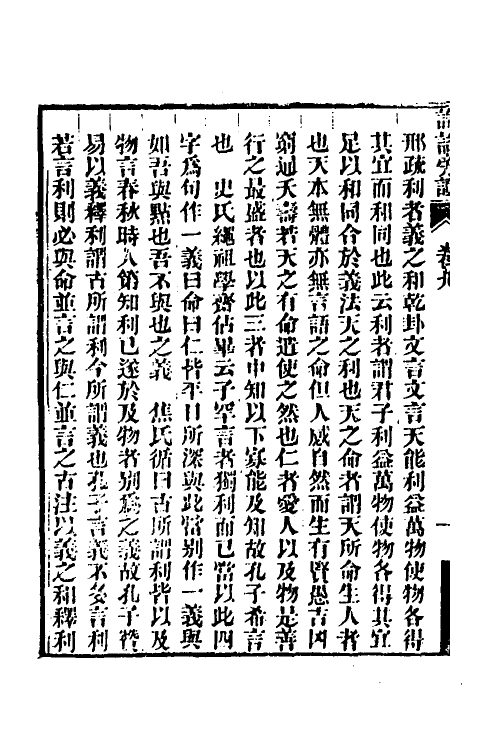 論語旁證 卷九 一
邢疏利者義之和乾卦文言文言天能利益萬物使物各得
其宜而和同也此云利者謂君子利益萬物使物各得其宜
足以和同合於義法天之利也天之命者謂天所命生人者
也天本無體亦無言語之命但人感自然而生有賢愚吉凶
窮通夭壽若天之有命遣使之然也仁者愛人以及物是善
行之最盛者也以此三者中知以下寡能及知故孔子希言
也　史氏繩祖學齋佔畢云子罕言者獨利而已當以此四
字為句作一義曰命曰仁皆平日所深與此當别作一義與
如吾與點也吾不與也之義　焦氏循曰古所謂利皆以及
物言春秋時人第知利已遂於及物者別為之義故孔子贊
易以義釋利謂古所謂利今所謂義也孔子言義不多言利
若言利則必與命並言之與仁並言之古注以義之和釋利